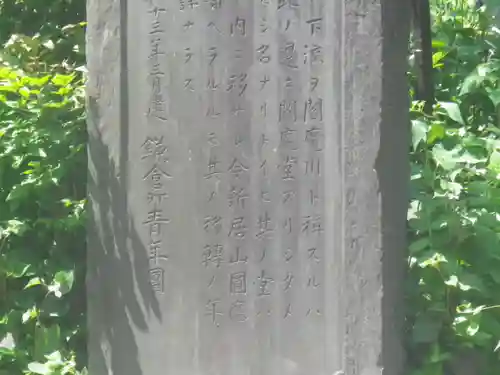 下流ヲ閻魔川ト稱スルハ
此ノ邊ニ閻魔堂アリシタメ
シ名ナリトイヒ其ノ堂ハ
内ニ移ナレ今新居山圓應
ヘラルルモ其ノ移轉ノ年
詳ナラス
十三年三月建 鎌倉町青年團